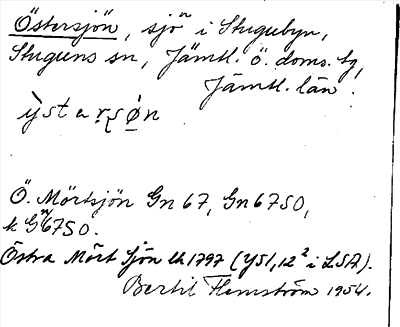 Östersjön, sjön i Stugubyn,
Stuguns sn, Jämtl. ö. doms. tg,
Jämtl. län.
ỳstaṛʂø̣n
Ö. Mörtsjön Gn 67, Gn 67SO,
k Gn 67SO.
Östra Mört Sjön LA 1797 (Y51,12² i LSA).
Bertil Flemström 1954.